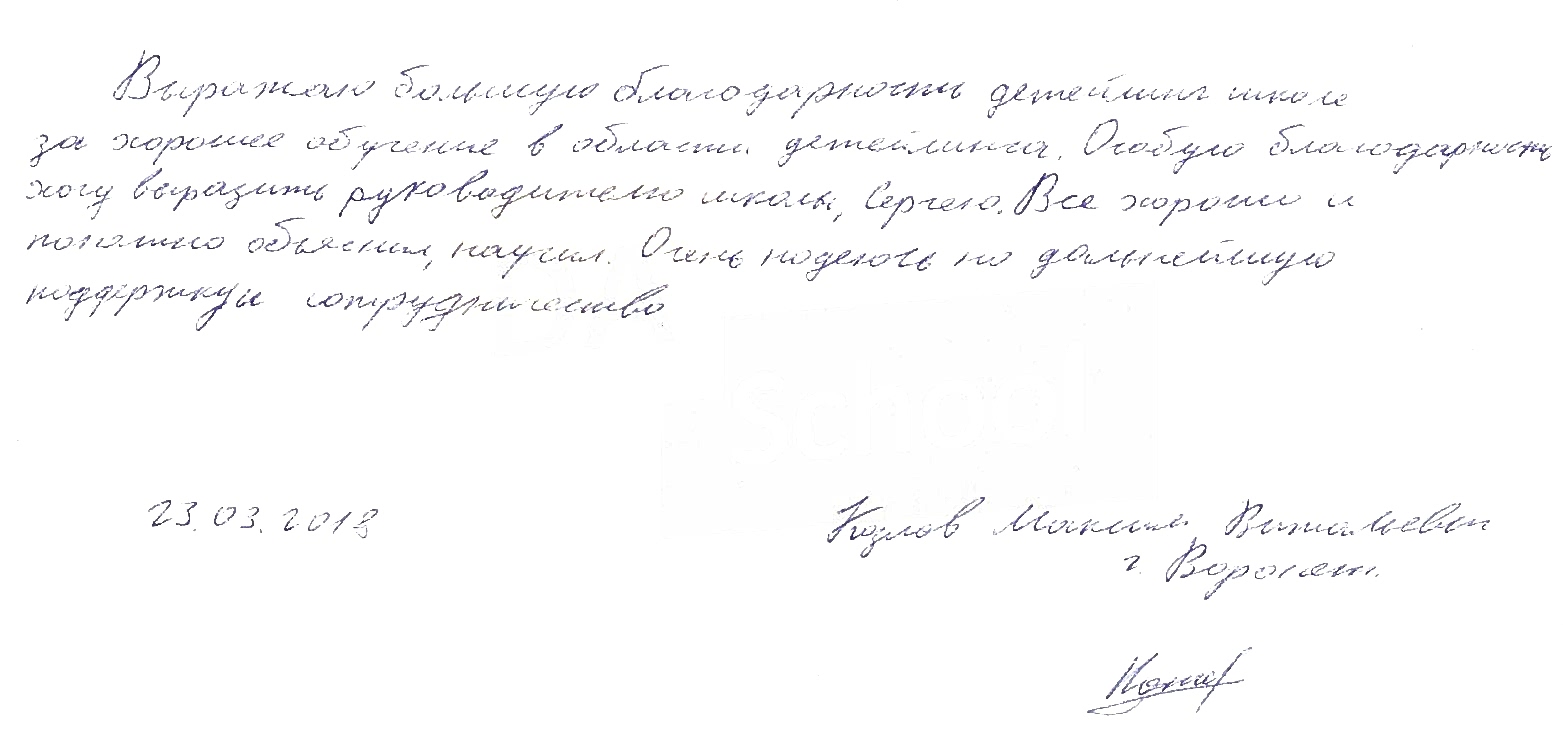 Выражаю большую благодарность детейлинг школе
за хорошее обучение в области детейлинга. Особую благодарность
хочу выразить руководителю школы, Сергею. Все хорошо и
понятно объяснил, научил. Очень надеюсь на дальнейшую
поддержку и сотрудничество
School
23.03.2018
Козлов Максим Витальевич
г. Воронеж.